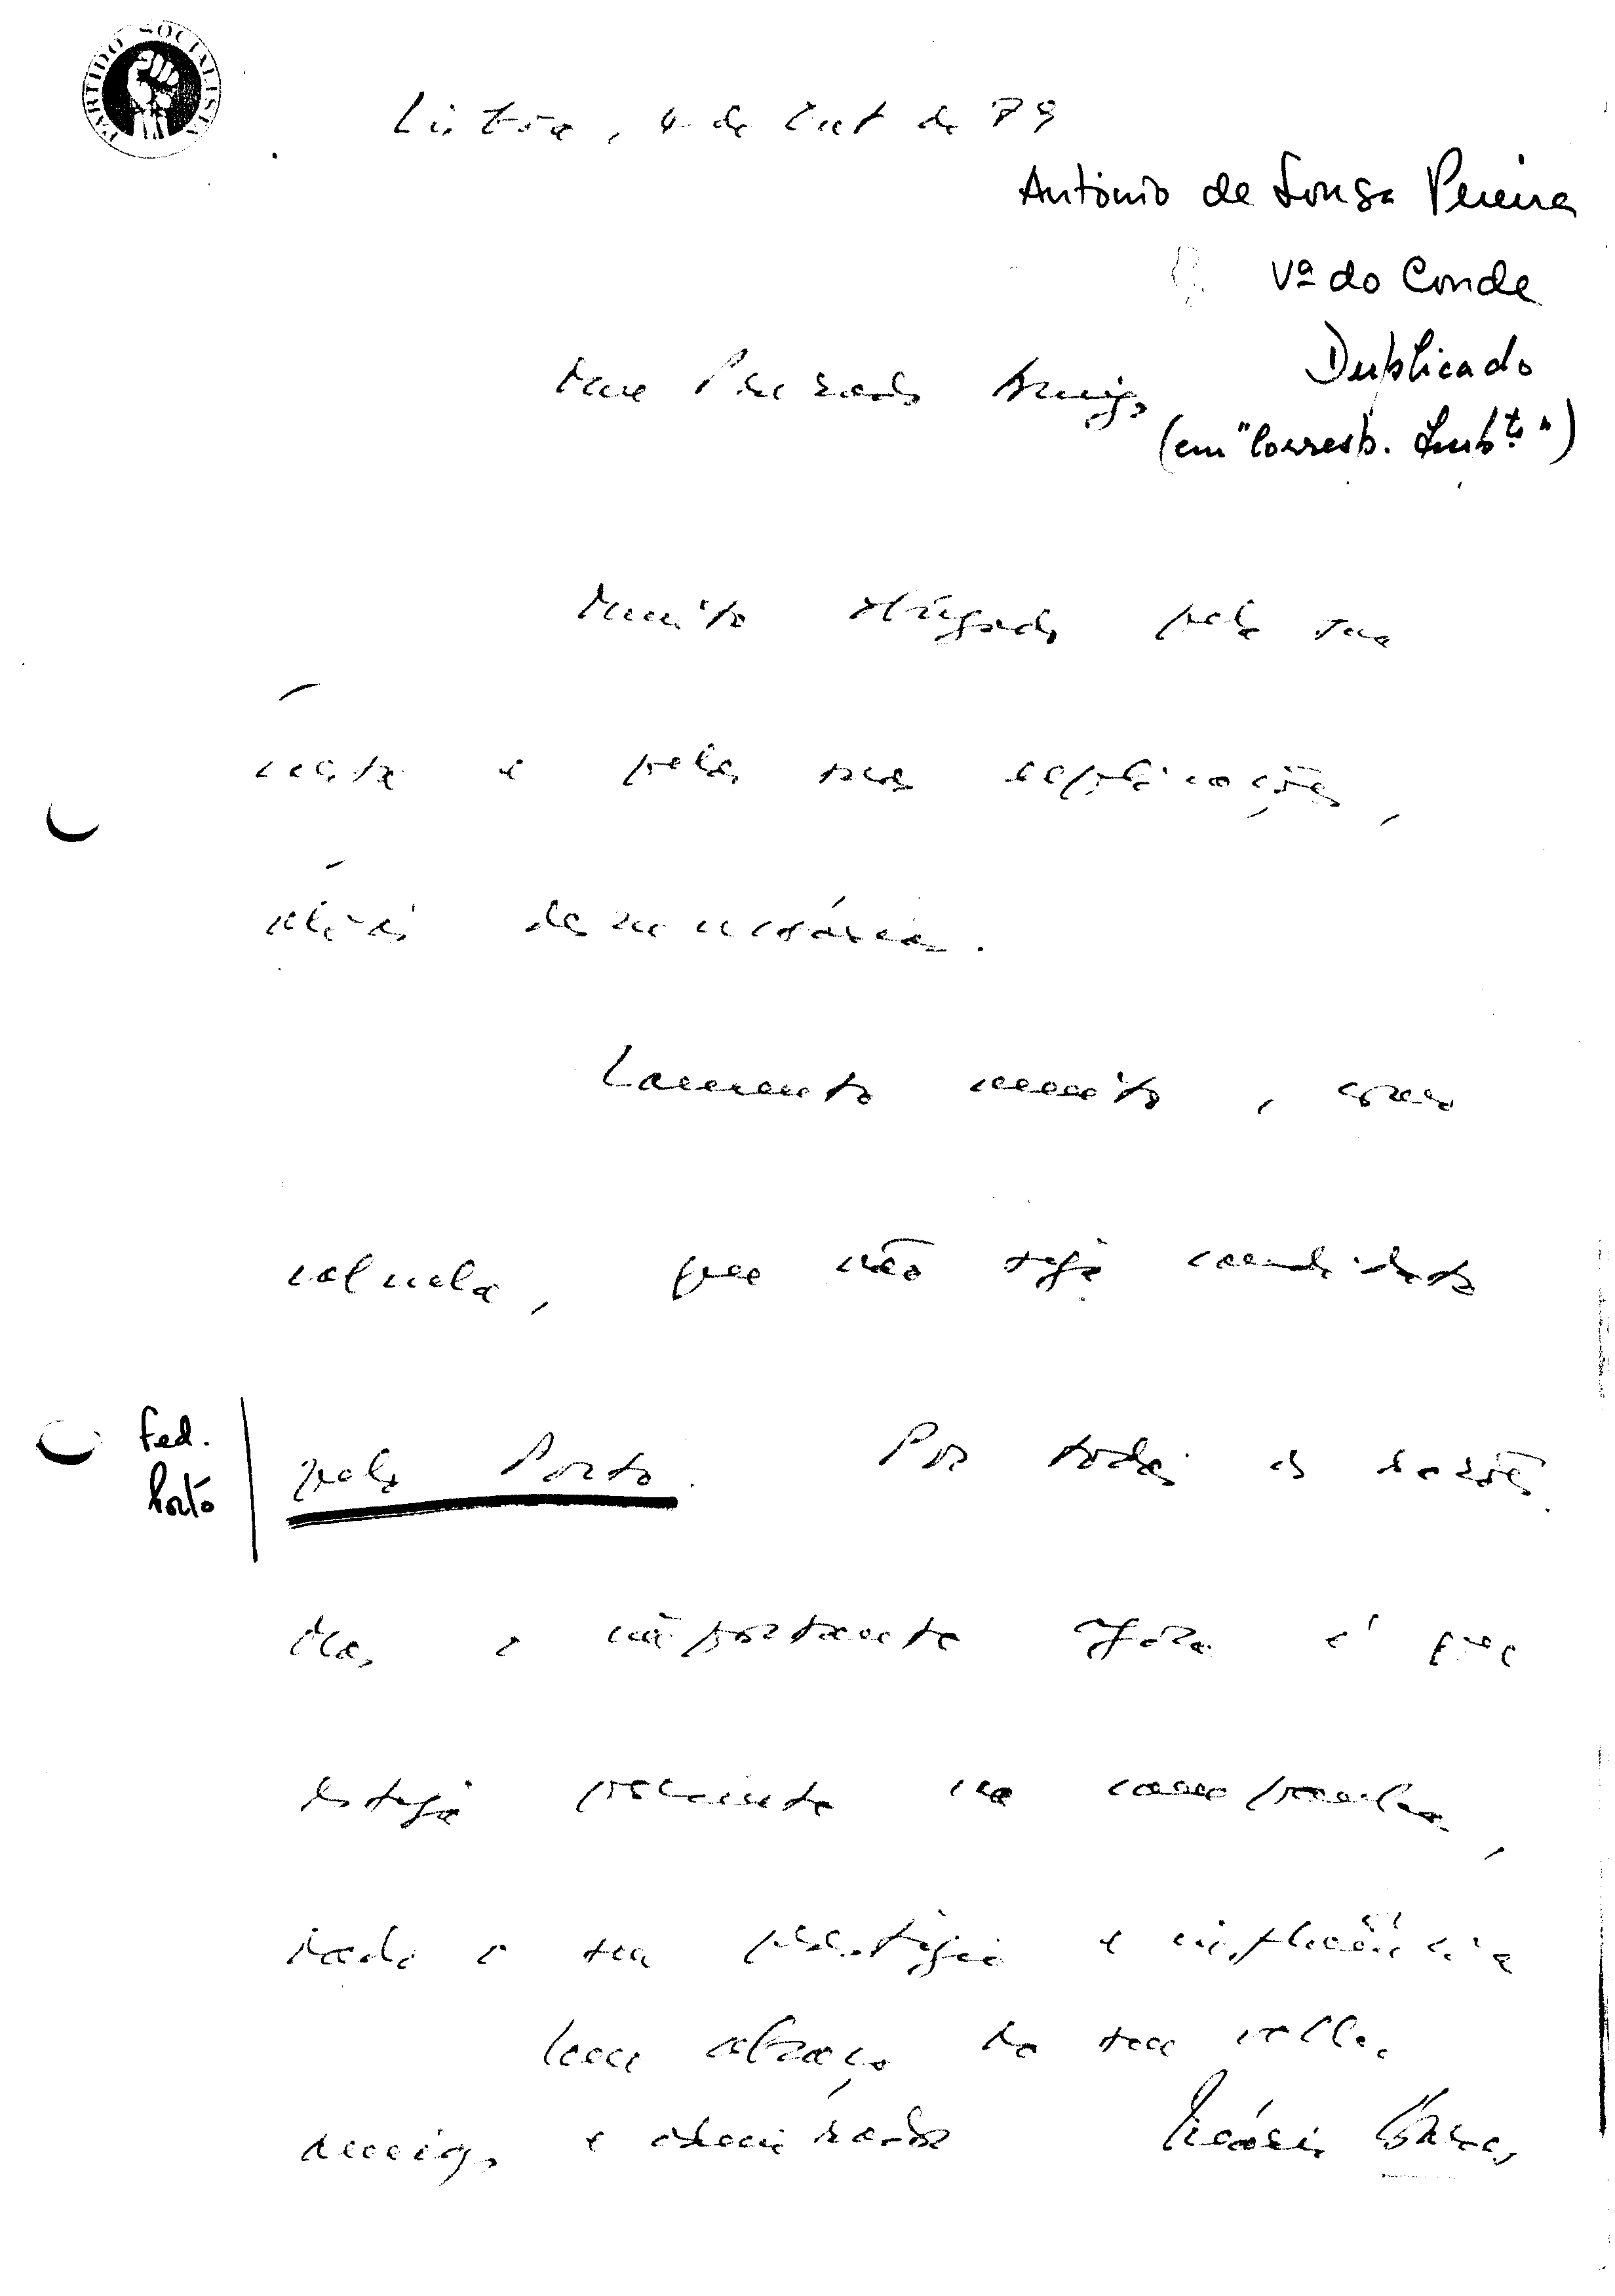 PARTIDO SOCIALISTA
Lisboa, 4 de Out de 79
António de Sousa Pereira
Vª do Conde
Duplicado
(em "Corresp. Imp.te")
Meu Prezado Amigo,
Muito obrigado pela sua
carta e pelas suas explicações,
aliás desnecessárias.
Lamento muito, como
calcula, que não seja candidato
Fed. Porto
pelo Porto. Por todas as razões.
Mas o importante agora é que
esteja presente na campanha,
dado o seu prestígio e influência
Um abraço do seu velho
amigo e admirador Mário Soares